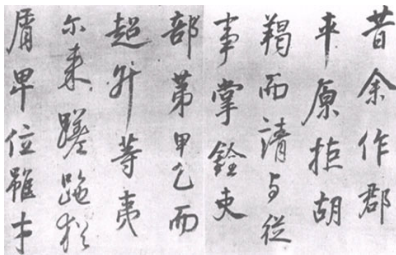 昔余作郡
平原拒胡
羯而請与從
事掌銓吏
部第甲乙而
超升等夷
尔来蹉跎猶
屑卑位雖才